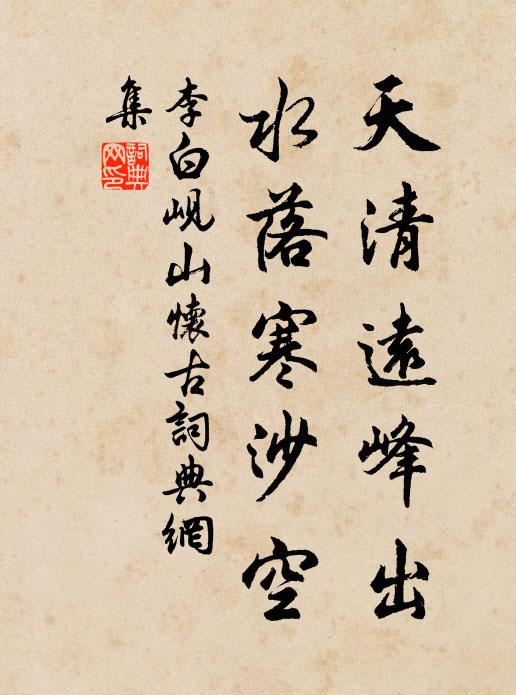 天清遠峰出
水落寒沙空
李白峴山懷古詞典網
集
詞典網印